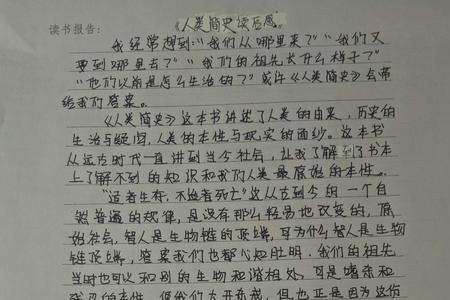 读书报告：
《人类简史》读后感。
我经常想到："我们从哪里来？""我们又
要到哪里去？""我们的祖先长什么样子？"
"他们以前是怎么生活的？"或许《人类简史》会带
给我们答案。
《人类简史》这本书讲述了人类的由来，历史的
生活与疑问，人类的本性与现实的面纱。这本书
从远古时代一直讲到当今社会，让我了解到了书本
上了解不到的知识和我们人类最原始的本性。
"适者生存，不适者死亡"这从古到今的一个自
然普遍的规律，是没有那么轻易地改变的，原
始社会，智人是生物链的顶端，可为什么智人是生物
链顶端，答案我们也都心知肚明。我们的祖先
当时也可以和别的生物和谐相处，可是嗜杀和
的本性，使我们大开杀戒，但也正是因为这份